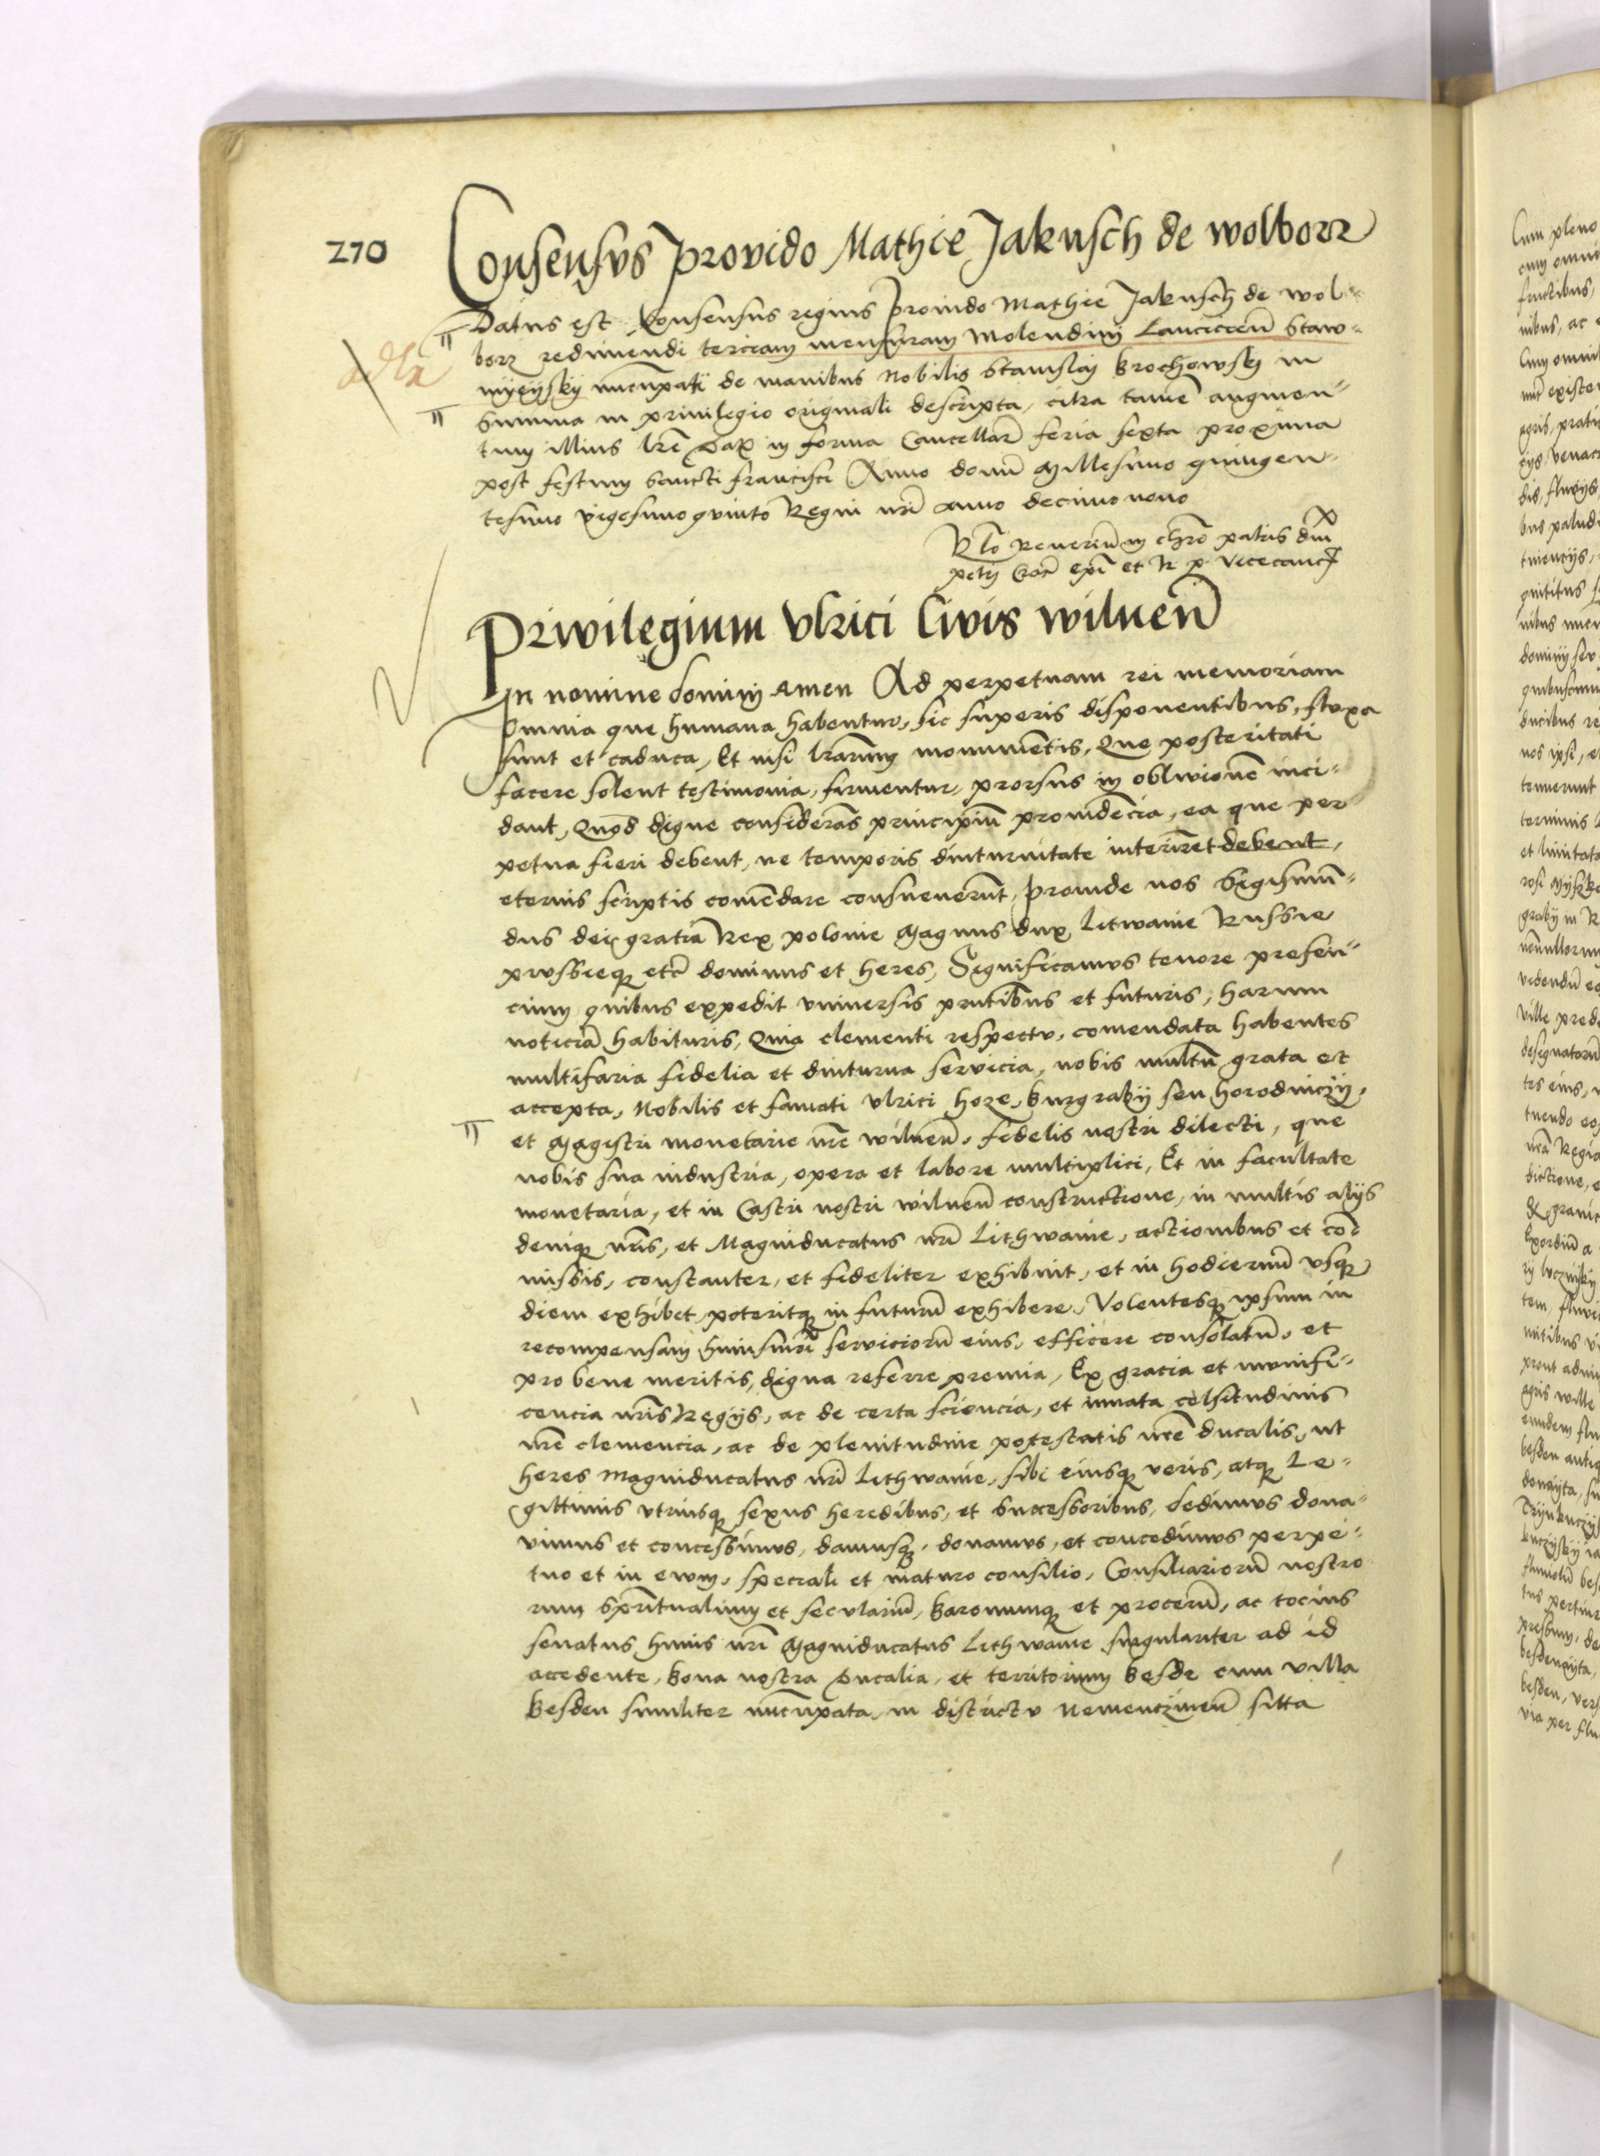 270
Consensvs Provido Mathie Jakusch de wolborz
Datus est Consensus regius Prouido Mathie Jakusch de wol-
borz redimendi terciam mensuram Molendinj Lancicieñ Staw-
nuncupati de manibus Nobilis Stanislaj Krochowskj in
Summa in priuilegio originali descripta, citra tamē augmen-
tum illius lrē Dat in forma Cancellar feria sexta proxima
post festum Sancti francisci Anno domī Millesimo quingen-
tesimo vigesimoquinto Regni nrī anno decimonono
Rlō Reuereñ in chrō patris dñi
petrj Crac̄ epī et R p Vicecanc̄
Privilegium Vlrici Civis wilneñ
In nomine dominj Amen Ad perpetuam rei memoriam
Omnia que humana habentur, sic superis disponentibus, fluxa
sunt et caduca, Et nisi lrarum monumentis, Que posteritati
facere solent testimonia, firmentur, prorsus in obliuionē inci-
dant, Quod digne considerās principiū prouidēcia, ea que per
petua fieri debent, ne temporis diuturnitate interirēt debent,
eternis scriptis comēdare consueuerūt, Proinde nos Sigismū-
dus dei gratia Rex polonie Magnus dux Litwanie Russie
prvssieqȝ etc̄ dominus et heres, Significamvs tenore presen-
cium quibus expedit vniuersis pn̄tibus et futuris, harum
noticiā habituris, Quia clementi respectv, comendata habentes
multifaria fidelia et diuturna servicia, nobis multū grata et
accepta, Nobilis et famati vlrici hoze, burgrabij seu horodniczij,
et Magistri monetarie nrē wilneñ, fidelis nostri dilecti, que
nobis sua industria, opera et labore multiplici, Et in facultate
monetaria, et in Castri nostri wilneñ constructione, in multis alijs
deniqȝ nrīs, et Magniducatus nrī Lithwanie, actionibus et com̄
missis, constanter, et fideliter exhibuit, et in hodiernū vsqȝ
diem exhibet, poteritqȝ in futurū exhibere, Volentesqȝ ipsum in
recompensam huiusmōi serviciorū eius, efficere consolatū, et
pro bene meritis, digna referre premia, Ex gracia et munifi-
cencia nrīs Regijs, ac de certa sciencia, et innata celsitudinis
nrē clemencia, ac de plenitudine potestatis nrē ducalis, ut
heres Magniducatus nrī Lithwanie, sibi eiusqȝ veris, atqȝ Le-
gittimis vtriusqȝ sexus heredibus, et Successoribus, dedimvs dona-
vimus et concessimvs, damusqȝ, donamvs, et concedimvs perpe-
tuo et in ewm, speciali et maturo consilio, Consiliariorū nostro
rum Spritualium et secularium, Baronumqȝ et procerū, ac tocius
senatus huius nrī Magniducatus Lithwanie singulariter ad id
accedente, Bona nostra Ducalia, et territorium Besde cum villa
Besden similiter nūcupata, in districtv Nemenczineñ sitta